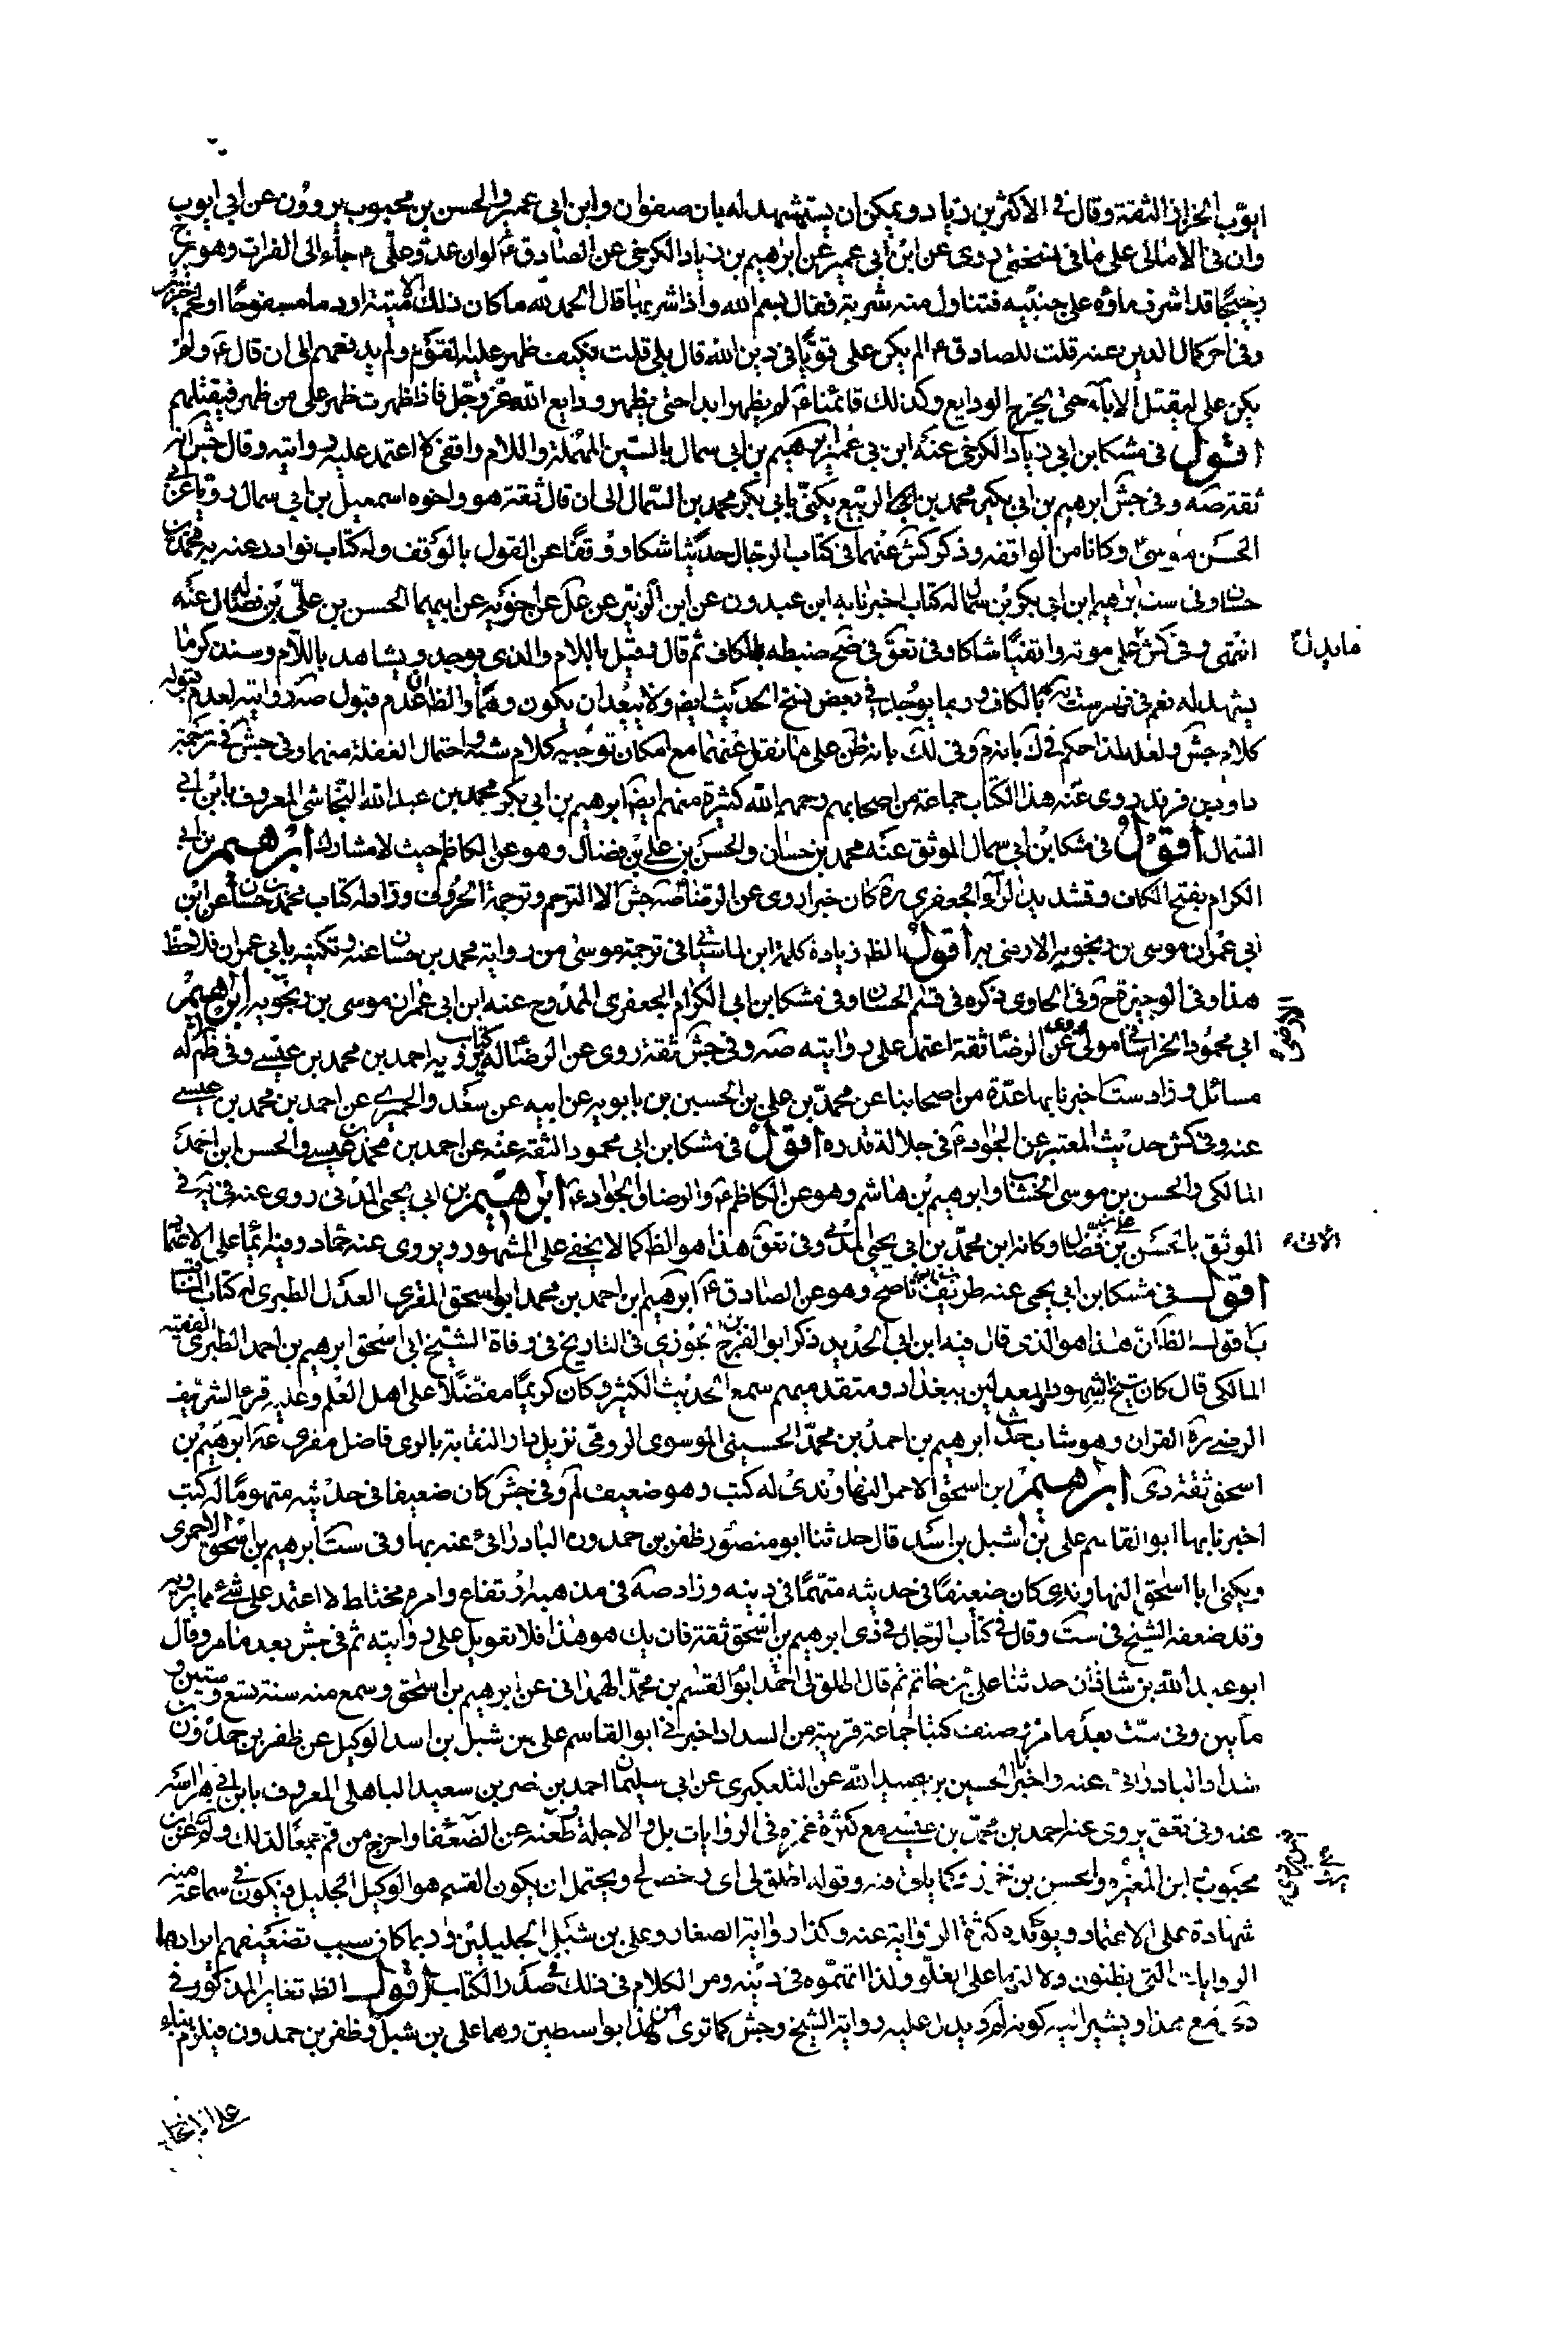 ابوب الخزاز الثقة وقال في الاكثر بن زياد ويمكن ان يستشهد له بان صفوان وابن ابي عمير والحسن بن محبوب يروون عن ابي ايوب
وان في الامالي على ما في نسختي روى عن ابن ابي عمير عن ابرهيم بن زياد الكرخي عن الصادق ع لو ان عدو علي ع جاء الى الفرات وهو يزج
زجيجا قد اشرف ماؤه على جنبيه فتناول منه شربة فقال بسم الله واذا شربها قال الحمد لله ما كان ذلك الا ميتة او دما مسفوحا او لحم خنزير
وفي اخر كمال الدين بعنه قلت للصادق ع الم يكن علي قويا في دين الله قال بلى قلت فكيف ظهر عليه القوم ولم يدفعهم الى ان قال ع ولم
يكن علي ليقتل الاباء حتى يخرج الودايع وكذلك قائمنا ع لم يظهر ابدا حتى يظهر ودايع الله عز وجل فاذا ظهرت ظهر على من ظهر فيقتلهم
اقول في مشكا ابن ابي زياد الكرخي عنه ابن ابي عمير ابرهيم بن ابي سمال بالسين المهملة واللام واقفي لا اعتمد عليه روايته وقال جش انه
ثقة صه وفي جش ابرهيم بن ابي بكر محمد بن الربيع يكنى بابي بكر محمد بن السمال الى ان قال ثقة هو واخوه اسمعيل بن ابي سمال رويا عن ابي
الحسن موسى ع وكانا من الواقفه وذكر كش عنهما في كتاب الرجال حديثا شكا ووقفا عن القول بالوقف وله كتاب نوادر عنه به محمد بن
حسان وفي ست ابرهيم ابن ابي بكر بن سمال له كتاب اخبرنا به ابن عبدون عن ابن الزبير عن علي عن اخويه عن ابيهما الحسن بن علي بن فضال عنه
انتهى وفي كش على موته واقفيا شاكا وفي تعق في ضح ضبطه بالكاف ثم قال وقيل باللام والذي يوجد ويشاهد باللام وسنذكر ما
يشهد له نعم في فهرست بالكاف وربما يوجد في بعض نسخ الحديث ايضا ولا يبعد ان يكون وهما والظ ان عدم قبول صه روايته لعدم قبوله
كلام جش ولعله لذا حكم في ك بانه م وفي لك بانه ظن على ما نقل عنهما مع امكان توجيه كلام واحتمال الغفلة منهما وفي جش في ترجمة
داود بن فرقد روى عنه هذا الكتاب جماعة من اصحابهم رحمهم الله كثيرة منهم ايضا ابرهيم بن ابي بكر محمد بن عبد الله النجاشي المعروف بابن ابي
السمال اقول في مشكا ابن ابي سمال الموثق عنه محمد بن حسان والحسن بن علي بن فضال وهو عن الكاظم حيث لا مشارك ابرهيم بن ابي
الكرام بفتح الكاف وتشديد الراء الجعفري ره كان خيرا روى عن الرضا ع صه جش الا الترحم وترجمة الحروف وزاد له كتاب محمد بن حسان عن ابن
ابي عمران موسى بن رنجويه الارمني به اقول الظ زيادة كلمة ابن لما سيأتي في ترجمة موسى من رواية محمد بن حسان عنه وتكنيته بابي عمران فلاحظ
هذا وفي الوجيزة ح وفي الحاوي ذكره في قسم الحسان وفي مشكا ابن ابي الكرام الجعفري الممدوح عنه ابن ابي عمران موسى بن رنجويه ابرهيم بن
ابي محمود الخراساني مولى روى عن الرضا ثقة اعتمد على روايته صه وفي جش ثقة روى عن الرضا ع له كتاب يرويه احمد بن محمد بن عيسى وفي ظم له
مسائل وزاد ست اخبرنا بها عدة من اصحابنا عن محمد بن علي بن الحسين بن بابويه عن ابيه عن سعد والحميري عن احمد بن محمد بن عيسى
عنه وفي كش حديث المعتبر عن الجواد ع في جلالة قدره اقول في مشكا ابن ابي محمود الثقة عنه عن احمد بن محمد بن عيسى والحسن ابن احمد
المالكي والحسن بن موسى الخشاب وابرهيم بن هاشم وهو عن الكاظم ع والرضا والجواد ع ابرهيم بن ابي يحيى المدني روى عنه في يه في
الموثق بالحسن بن علي بن فضال وكانه ابن محمد بن ابي يحيى المدني وفي تعق هذا هو الظ كما لا يخفى على المشهور ويروي عنه حماد وفيه ايماء الى الاعتماد
اقول في مشكا ابن ابي يحيى عنه طريف بن ناصح وهو عن الصادق ع ابرهيم بن احمد بن محمد ابو اسحق المقري العدل الطبري له كتاب المناقب
ب اقول الظ ان هذا هو الذي قال فيه ابن ابي الحديد ذكر ابو الفرج بن الجوزي في التاريخ في وفاة الشيخ ابي اسحق ابرهيم بن احمد الطبري الفقيه
المالكي قال كان شيخ الشهود المعدلين ببغداد ومتقدميهم سمع الحديث الكثير وكان كريما مفضلا على اهل العلم وعليه قرء الشريف
الرضي ره القران وهو شاب حدث ابرهيم بن احمد بن محمد الحسيني الموسوي الرومي نزيل دار النقابة بالري فاضل مقري عه ابرهيم بن
اسحق ثقة دي ابرهيم بن اسحق الاحمر النهاوندي له كتب وهو ضعيف لم وفي جش كان ضعيفا في حديثه متهوما له كتب
اخبرنا بها ابو القاسم علي بن شبل بن اسد قال حدثنا ابو منصور ظفر بن حمدون البادرائي عنه بها وفي ست ابرهيم بن اسحق الاحمري
ويكنى ابا اسحق النهاوندي كان ضعيفا في حديثه متهما في دينه وزاد صه في مذهبه ارتفاع وامره مختلط لا اعتمد على شئ مما يرويه
وقد ضعفه الشيخ في ست وقال في كتاب الرجال في دي ابرهيم بن اسحق ثقة فان يك هو هذا فلا تعويل على روايته ثم في جش بعد ما مر وقال
ابو عبد الله بن شاذان حدثنا علي بن حاتم ثم قال اطلق لي احمد ابو القسم بن محمد الهمداني عن ابرهيم بن اسحق وسمع منه سنة تسع وستين و
مأتين وفي ست بعد ما مر صنف كتبا جماعة قريبة من السداد اخبرني ابو القاسم علي بن شبل بن اسد الوكيل عن ظفر بن حمدون بن
شداد البادرائي عنه واخبرنا الحسين بن عبيد الله عن التلعكبري عن ابي سليمان احمد بن نصر بن سعيد الباهلي المعروف بابن ابي هراسة
عنه وفي تعق يروي عنه احمد بن محمد بن عيسى مع كثرة غمزه في الروايات بل والاجلة وطعنه عن الضعفا واخرج من قم جمعا لذلك ولم عن ابن
محبوب ابن المغيرة والحسن بن خرزاذ كما يلوق منه وقوله اطلق لي اي رخص لي ويحتمل ان يكون القسم هو الوكيل الجليل فيكون في سماعه منه
شهادة على الاعتماد ويؤكده كثرة الرواية عنه وكذا رواية الصفار وعلي بن شبل الجليلين وربما كان سبب تضعيفهم ايراده
الروايات التي يظنون دلالتها على الغلو ولذا اتهموه في دينه ومر الكلام في ذلك في صدر الكتاب اقول الظ تغاير المذكور في
دي مع هذا ويشير اليه كونه لم ويدل عليه رواية الشيخ وجش كما ترى عن هذا بواسطتين وهما علي بن شبل وظفر بن حمدون فيلزم بناء
ما يدل
الأتي